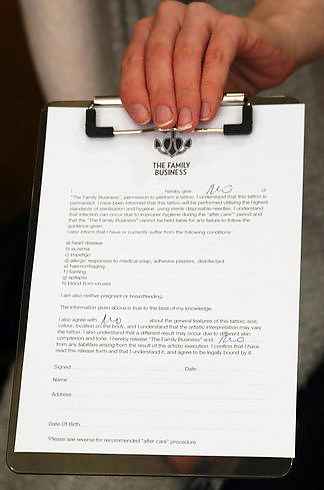 THE FAMILY
BUSINESS
I hereby give Mo of
"The Family Business", permission to perform a tattoo. I understand that this tattoo is
permanent. I have been informed that this tattoo will be performed utilising the highest
standards of sterilisation and hygiene, using sterile disposable needles. I understand
that infection can occur due to improper hygiene during the "after care" period and
that "The Family Business" cannot be held liable for any failure to follow the
guidance given.
I also inform that I have or currently suffer from the following conditions :
a) heart disease
b) eczema
c) impetigo
d) allergic responses to medical soap, adhesive plasters, disinfectant
e) haemorrhaging
f) fainting
g) epilepsy
h) blood born viruses
I am also neither pregnant or breastfeeding.
The information given above is true to the best of my knowledge.
I also agree with Mo about the general features of this tattoo, size,
colour, location on the body, and I understand that the artistic interpretation may vary
the tattoo. I also understand that a different result may occur due to different skin
complexion and tone. I hereby release "The Family Business" and Mo
from any liabilities arising from the result of the artistic execution. I confirm that I have
read this release form and that I understand it, and agree to be legally bound by it.
Signed Date
Name
Address
Date Of Birth
*Please see reverse for recommended "after care" procedure